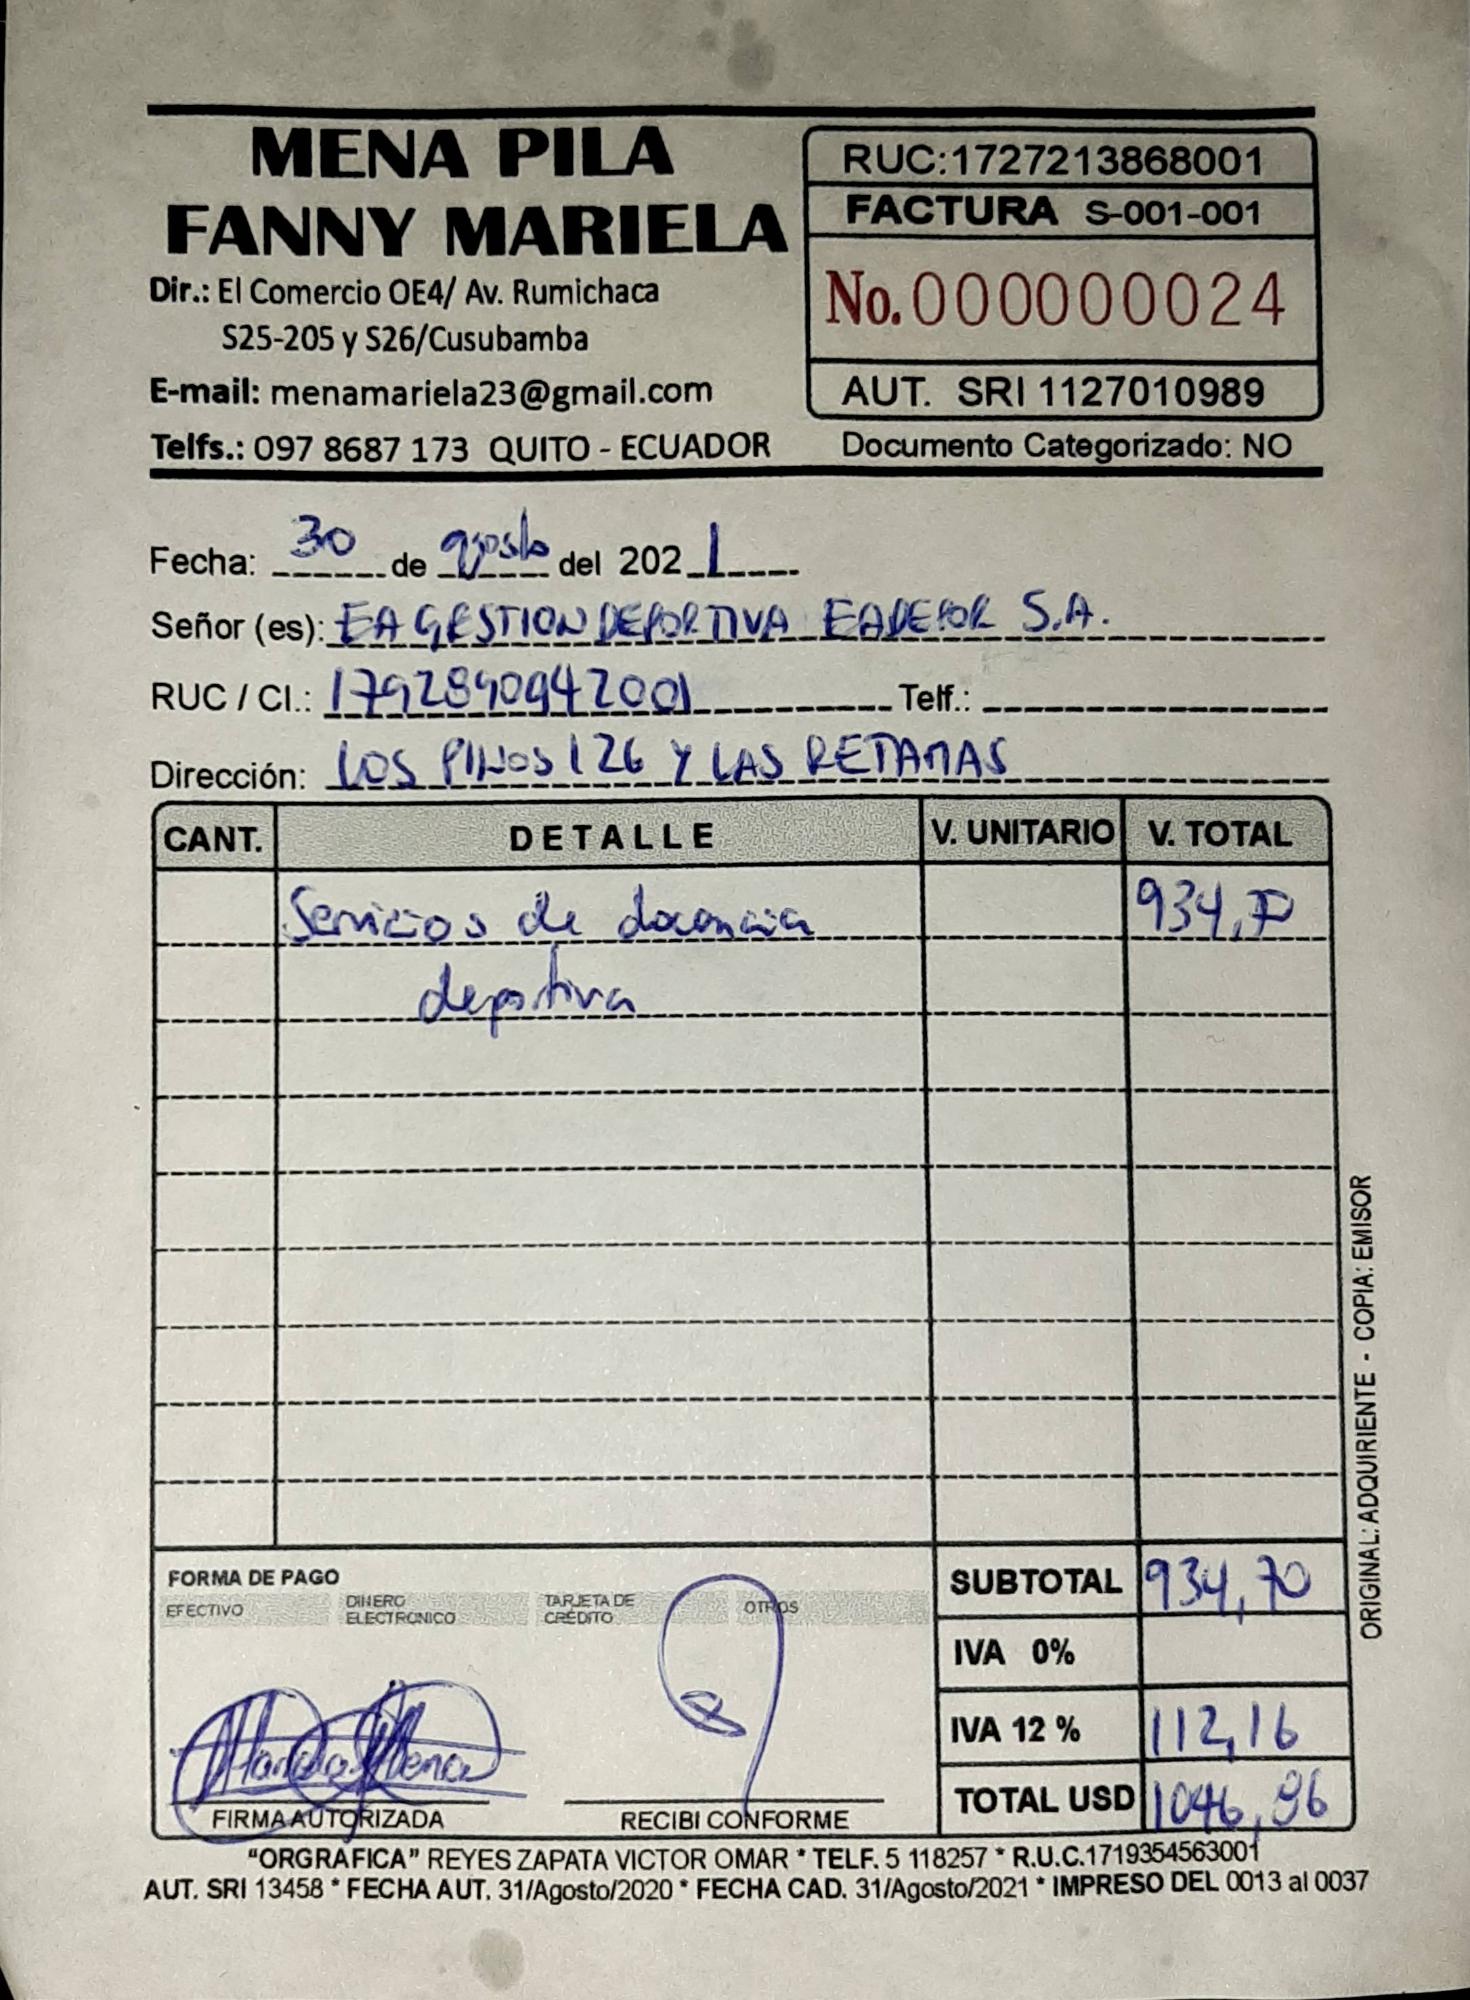 MENA PILA
FANNY MARIELA
Dir.: El Comercio OE4/ Av. Rumichaca
S25-205 y S26/Cusubamba
E-mail: menamariela23@gmail.com
Telfs.: 097 8687 173 QUITO - ECUADOR
RUC:1727213868001
FACTURA S-001-001
No.000000024
AUT. SRI 1127010989
Documento Categorizado: NO
Fecha: 30 de agosto del 2021
Señor (es): EA GESTION DEPORTIVA EADEPOR S.A.
RUC / CI.: 17928940942001 Telf.:
Dirección: LOS PINOS 126 Y LAS RETAMAS
CANT. DETALLE V. UNITARIO V. TOTAL
Servicios de docencia 934,70
deportiva
FORMA DE PAGO
EFECTIVO DINERO ELECTRONICO TARJETA DE CRÉDITO OTROS
SUBTOTAL 934,70
IVA 0%
IVA 12 % 112,16
TOTAL USD 1046,86
Mariela Mena
FIRMA AUTORIZADA RECIBI CONFORME
"ORGRAFICA" REYES ZAPATA VICTOR OMAR * TELF. 5 118257 * R.U.C.1719354563001
AUT. SRI 13458 * FECHA AUT. 31/Agosto/2020 * FECHA CAD. 31/Agosto/2021 * IMPRESO DEL 0013 al 0037
ORIGINAL: ADQUIRIENTE - COPIA: EMISOR